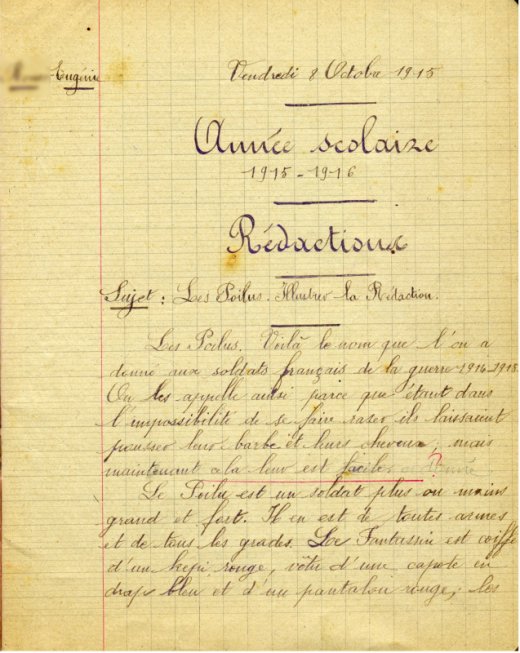 Eugénie
Vendredi 8 Octobre 1915
Année scolaire
1915-1916
Rédactions
Sujet : Les Poilus. Illustrer la Rédaction.
Les Poilus. Voilà le nom que l'on a
donné aux soldats français de la guerre 1914-1915.
On les appelle ainsi parce que étant dans
l'impossibilité de se faire raser ils laissaient
pousser leur barbe et leurs cheveux ; mais
maintenant cela leur est facile ?
Le Poilu est un soldat plus ou moins
grand et fort. Il en est de toutes armes
et de tous les grades. Le Fantassin est coiffé
d'un kepi rouge, vêtu d'une capote en
drap bleu et d'un pantalon rouge, les